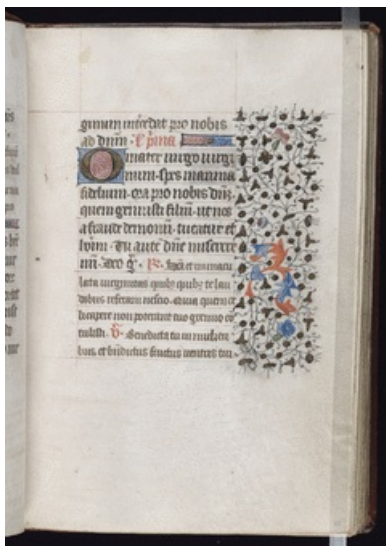 ginum intercedat pro nobis
ad dnm
O mater virgo virgi
num. Spes maxima
fidelium. ora pro nobis
quem genuisti filium ut nos
a fraude demonum tueatur et
Tu aute dne miserere
Sca et inmacu
lata virginitas quibz quibz te lau
dibus referam nescio. Quia quem ce
li capere non poterant tuo gremio co
tulisti. V. Benedicta tu in mulieri
bus. et bndictus fructus ventris tui.